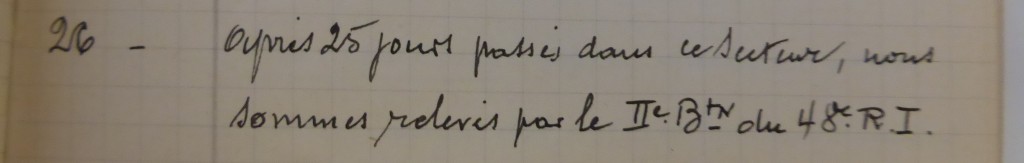 26 - Après 25 jours passés dans ce secteur, nous
sommes relevés par le IIe. Btn du 48e. R. I.